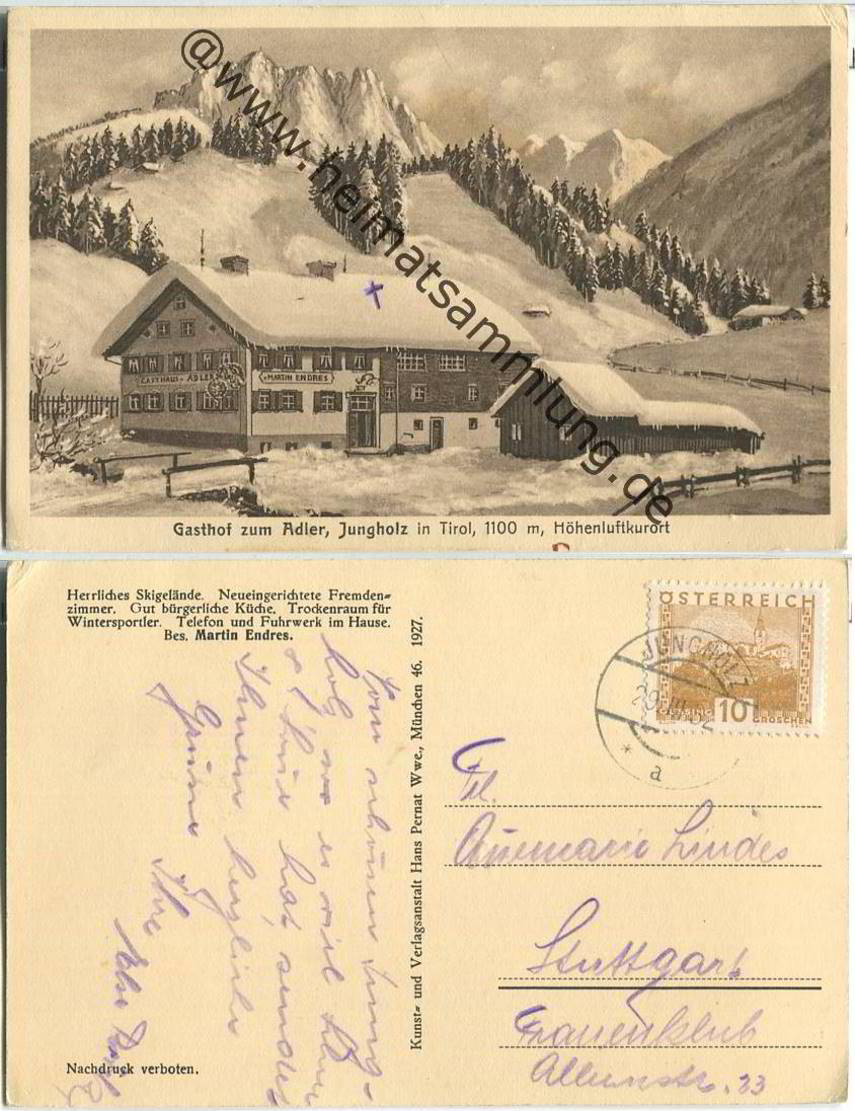 @www.heimatsammlung.de
GASTHAUS z. ADLER
v. MARTIN ENDRES
Gasthof zum Adler, Jungholz in Tirol, 1100 m, Höhenluftkurort
Herrliches Skigelände. Neueingerichtete Fremden=
zimmer. Gut bürgerliche Küche. Trockenraum für
Wintersportler. Telefon und Fuhrwerk im Hause.
Bes. Martin Endres.
Vom schönen Jung-
holz wo es viel
hat, sendet
Ihnen herzliche
Grüsse
Ihre
Nachdruck verboten.
Kunst= und Verlagsanstalt Hans Pernat Wwe., München 46. 1927.
ÖSTERREICH
GÜSSING
10
GROSCHEN
JUNGHOLZ
29.III.32
* a
Frl.
Annemarie Lindes
Stuttgart
Frauenklub
33